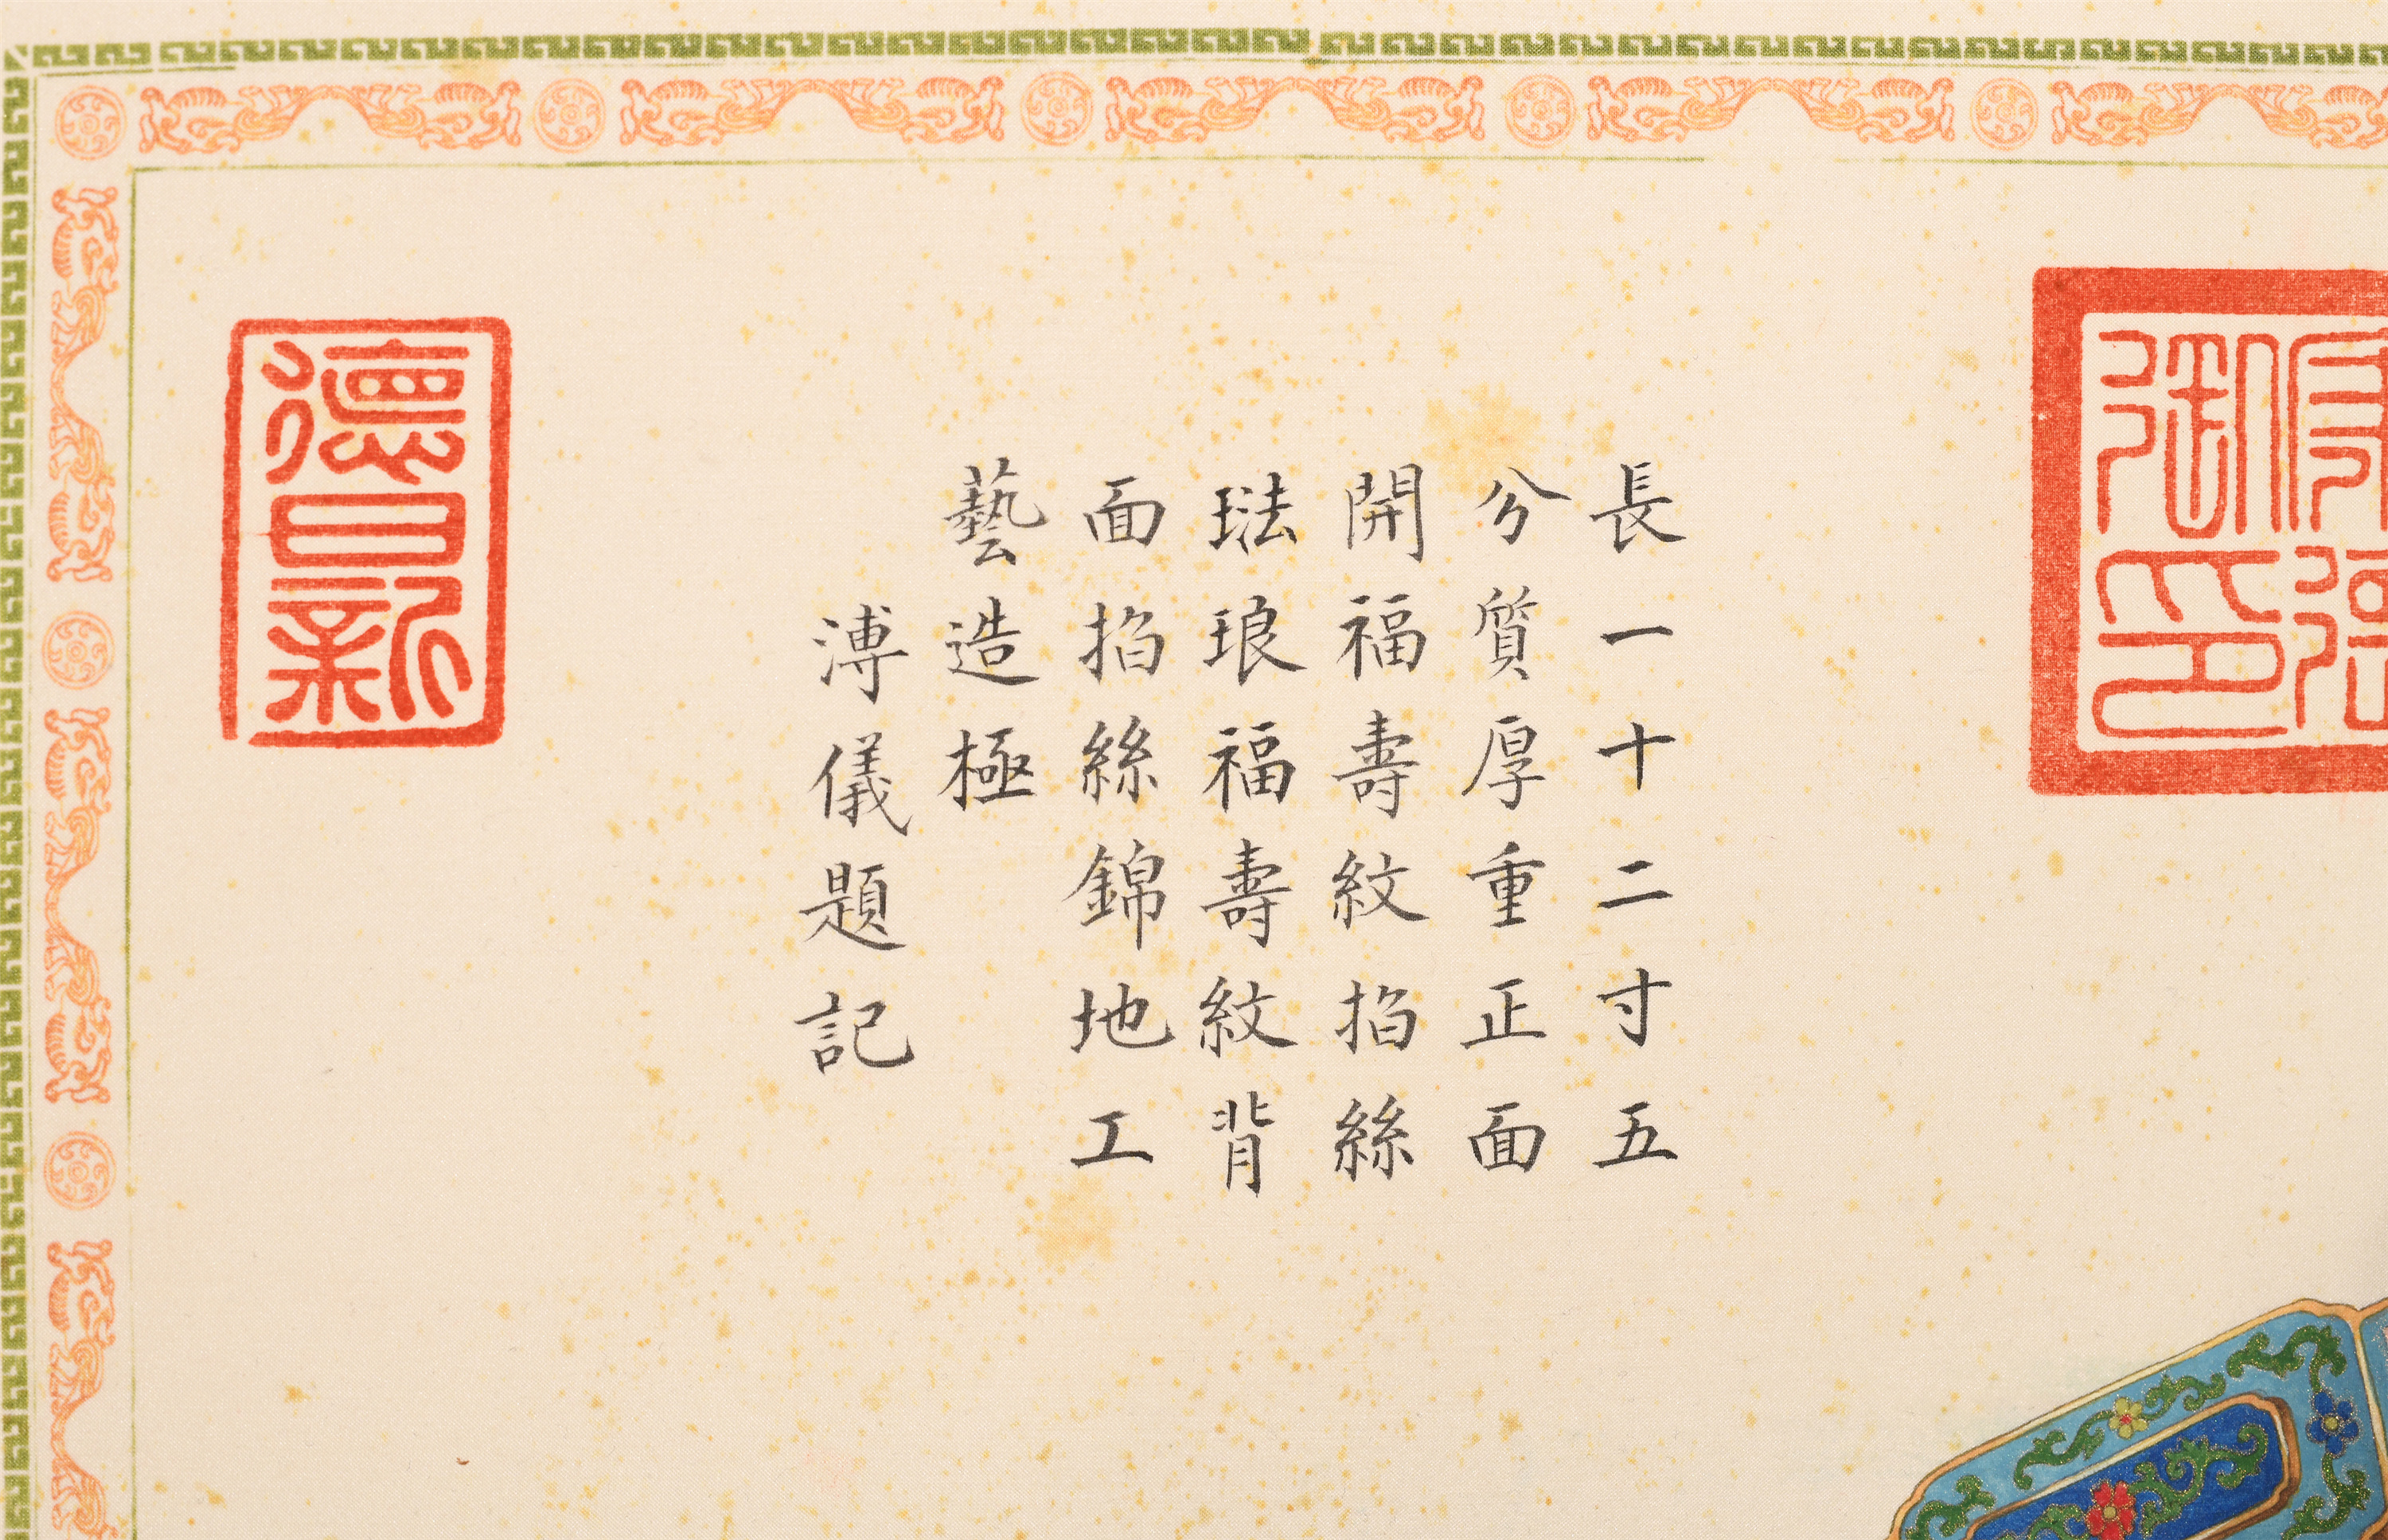 御印
長一十二寸五
分質厚重正面
開福壽紋掐絲
琺琅福壽紋背
面掐絲錦地工
藝造極
溥儀題記
德日新